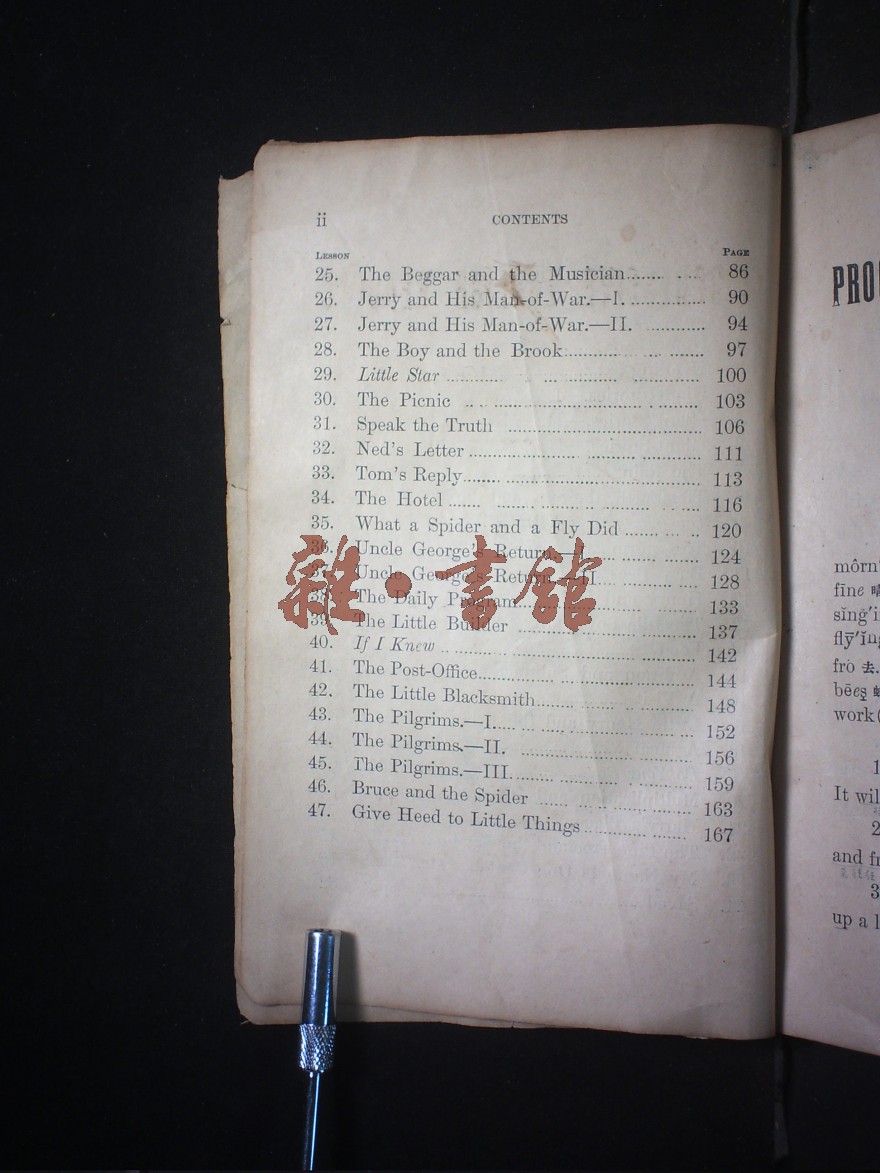 ii CONTENTS
LESSON PAGE
25. The Beggar and the Musician 86
26. Jerry and His Man-of-War.—I. 90
27. Jerry and His Man-of-War.—II. 94
28. The Boy and the Brook 97
29. Little Star 100
30. The Picnic 103
31. Speak the Truth 106
32. Ned's Letter 111
33. Tom's Reply 113
34. The Hotel 116
35. What a Spider and a Fly Did 120
36. Uncle George's Return.—I. 124
37. Uncle George's Return.—II. 128
38. The Daily Program 133
39. The Little Builder 137
40. If I Knew 142
41. The Post-Office 144
42. The Little Blacksmith 148
43. The Pilgrims.—I. 152
44. The Pilgrims.—II. 156
45. The Pilgrims.—III. 159
46. Bruce and the Spider 163
47. Give Heed to Little Things 167
雜·書館
PRO
môrn'
fīne 晴
sĭng'i
flȳ'ĭng
frō 去.
bēeş
work(
1
It wil
2
and fr
3
up a l